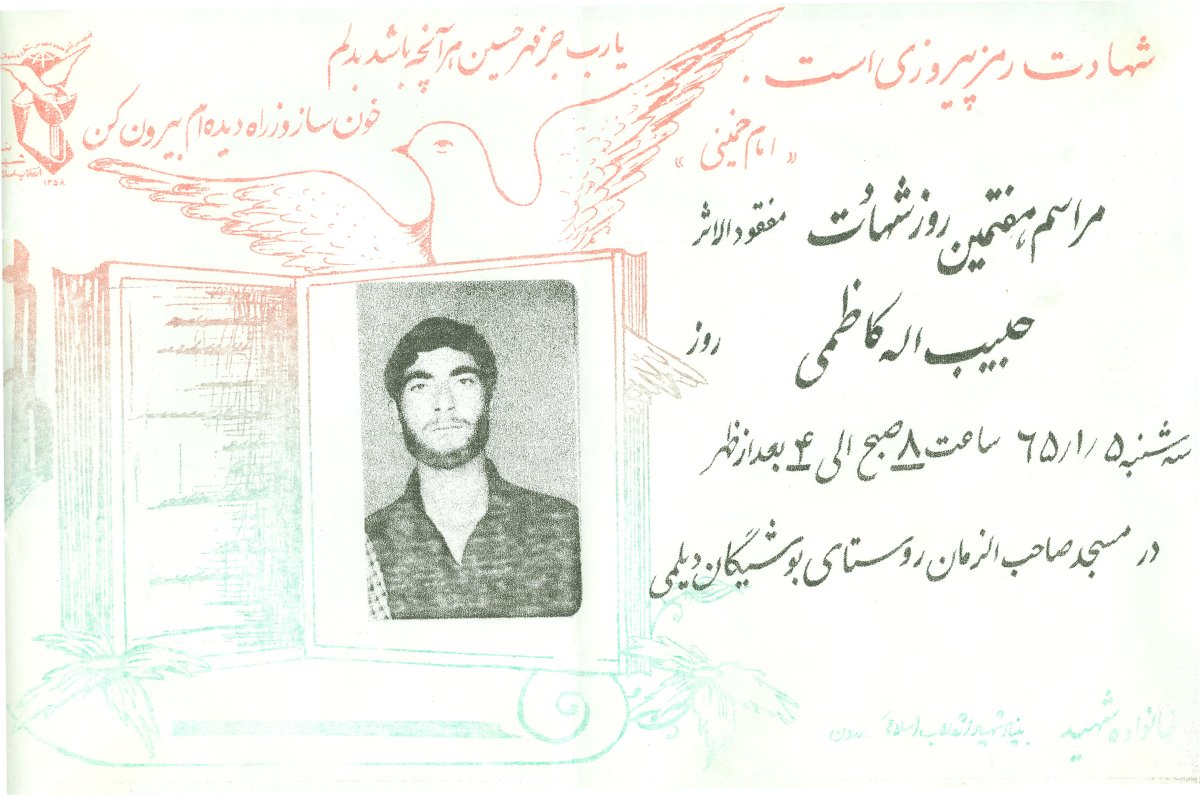 شهادت رمز پیروزی است .
« امام خمینی »
یارب جز مهر حسین هرآنچه باشد بدلم
خون ساز و ز راه دیده ام بیرون کن
۱۳۵۸
مراسم هفتمین روز شهادت مفقودالاثر
حبیب اله کاظمی روز
سه شنبه ۶۵/۱/۵ ساعت ۸ صبح الی ۴ بعدازظهر
در مسجد صاحب الزمان روستای بوشیگان دیلمی
خانواده شهید بنیاد شهید انقلاب اسلامی